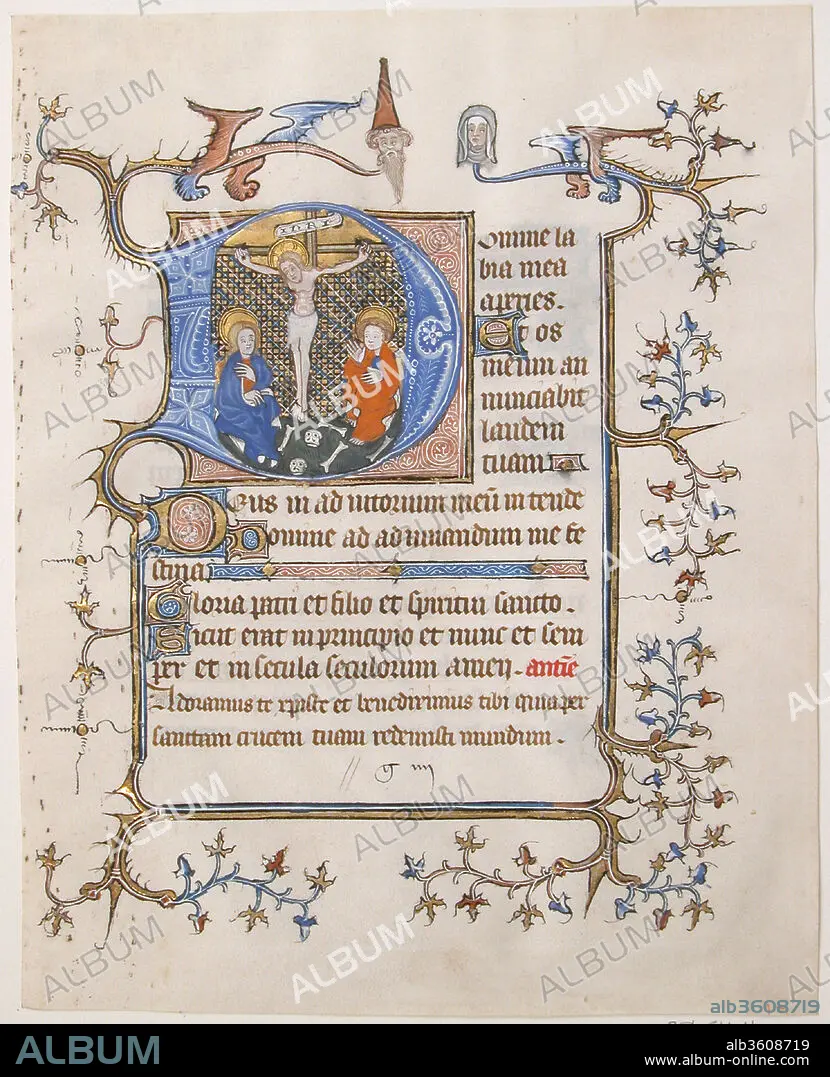 INRI
Domine la
bia mea
aperies.
Et os
meum an
nunciabit
laudem
tuam
Deus in adiutorium meū intende
Domine ad adiuuandum me fe
stina
Gloria patri et filio et spiritui sancto.
Sicut erat in principio et nunc et sem
per et in secula seculorum amen. antiē
Adoramus te xpiste et benedicimus tibi quia per
sanctam crucem tuam redemisti mundum.
alb3608719
ALBUM
alb3608719
www.album-online.com